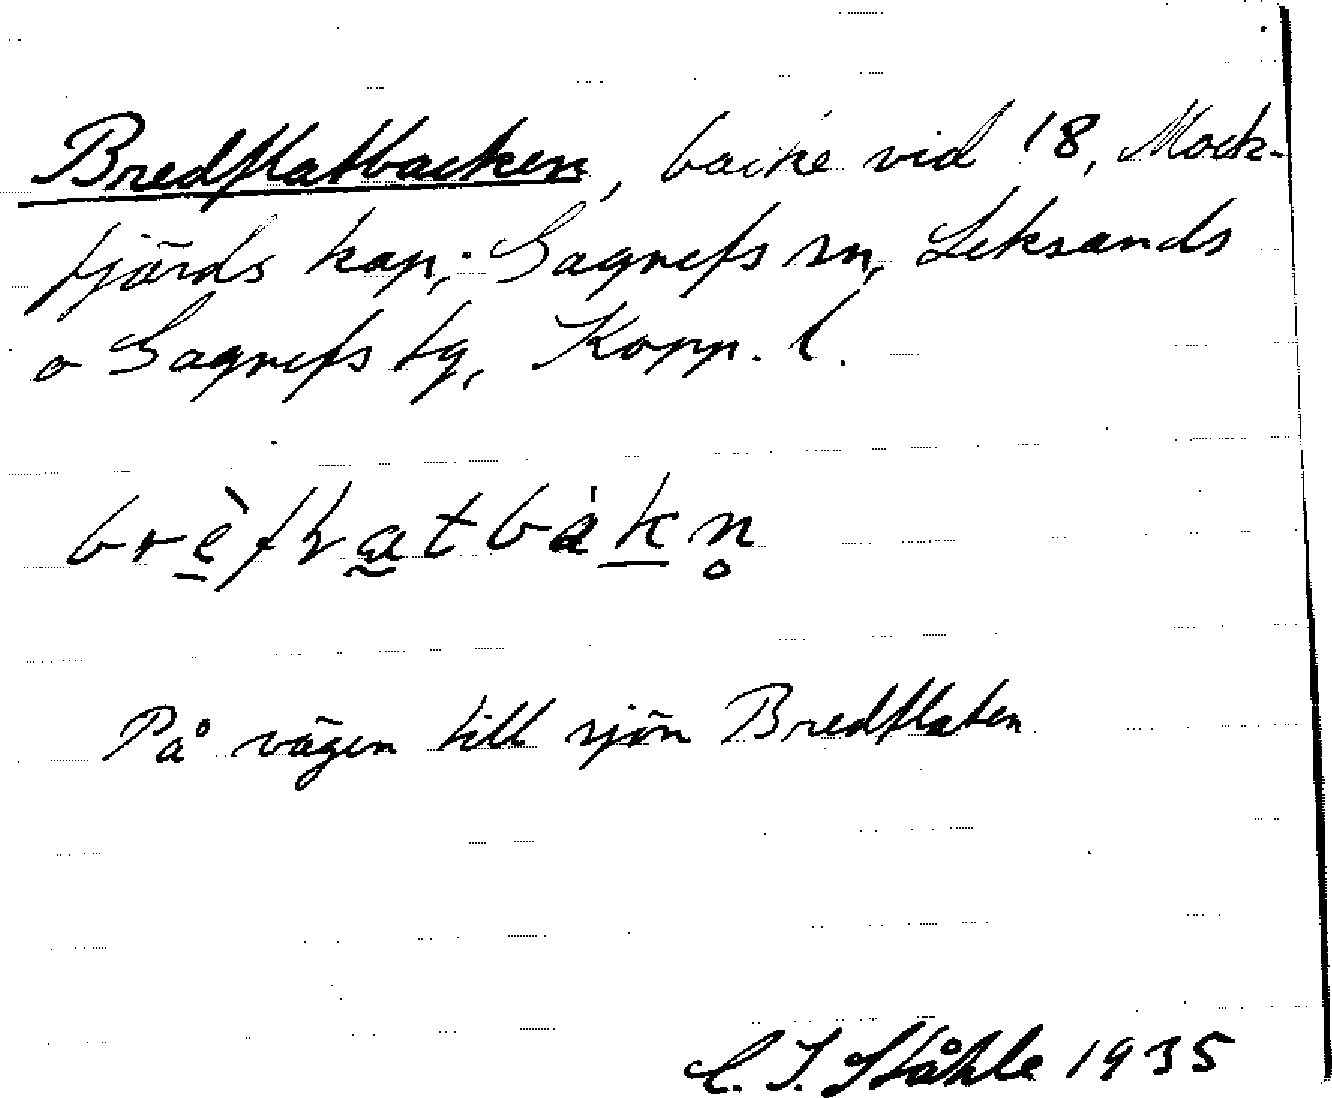 Bredflatbacken, backe vid 18, Mock-
fjärds kap; Gagnefs sn, Leksands
o Gagnefs tg, Kopp. l.
brèfɫatbákn̥
På vägen till sjön Bredflaten
C. I. Ståhle 1935